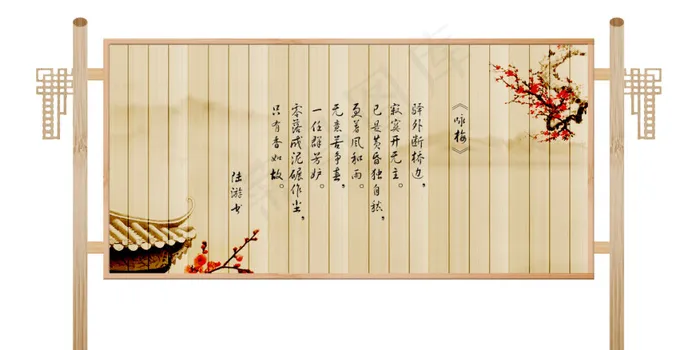 《咏梅》
驿外断桥边,
寂寞开无主。
已是黄昏独自愁,
更着风和雨。
无意苦争春,
一任群芳妒。
零落成泥碾作尘,
只有香如故。
陆游书